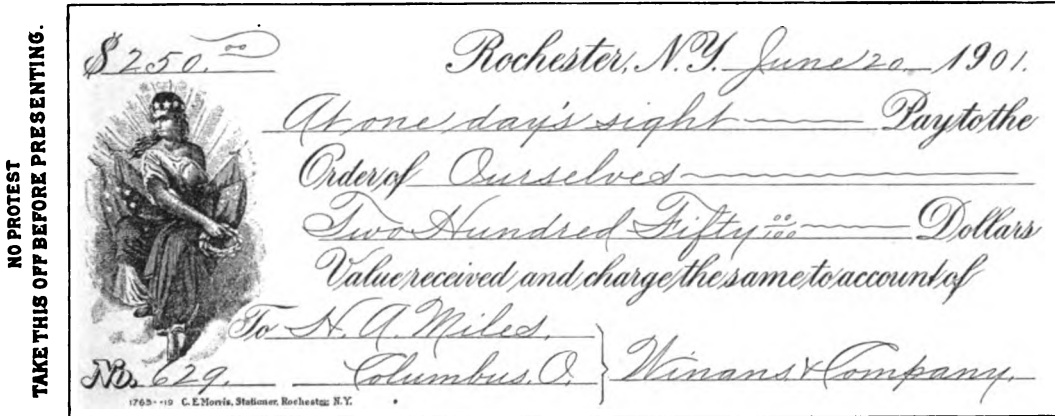 NO PROTEST
TAKE THIS OFF BEFORE PRESENTING.
$ 250.00 Rochester, N.Y. June 20 1901.
At one day's sight Pay to the
Order of Ourselves
Two Hundred Fifty 00/100 Dollars
Value received and charge the same to account of
To H. A. Miles,
No. 629. Columbus, O. } Winans & Company.
1765--19 C. E. Morris, Stationer, Rochester N.Y.